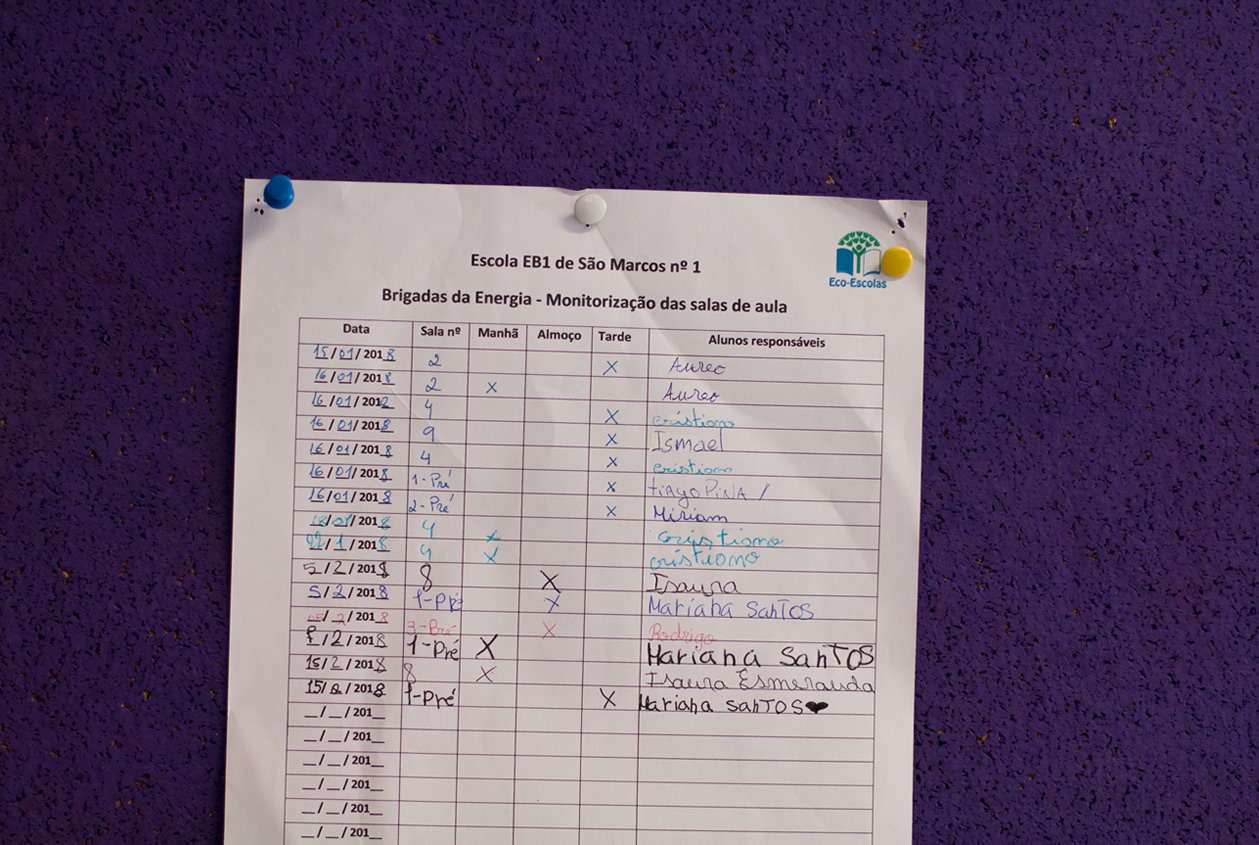 Escola EB1 de São Marcos nº 1
Eco-Escolas
Brigadas da Energia - Monitorização das salas de aula
Data Sala nº Manhã Almoço Tarde Alunos responsáveis
15/01/2018 2 X Aureo
16/01/2018 2 X Aureo
16/01/2012 4 X cristiano
16/01/2018 9 X Ismael
16/01/2018 4 X cristiano
16/01/2018 1-Pré X tiago PiNA /
16/01/2018 2-Pré X Miriam
18/01/2018 4 X Cristiano
/1/2018 4 X cristiano
5/2/2018 8 X Isaura
5/2/2018 1-Pré X Mariana SanTOS
05/2/2018 3-Pré X Rodrigo
/2/2018 1-Pré X Mariana SanTOS
15/2/2018 8 X Isaura Esmerauda
15/2/2018 1-Pré X Mariana SanTOS♥
__/__/201__
__/__/201__
__/__/201__
__/__/201__
__/__/201__
__/__/201__